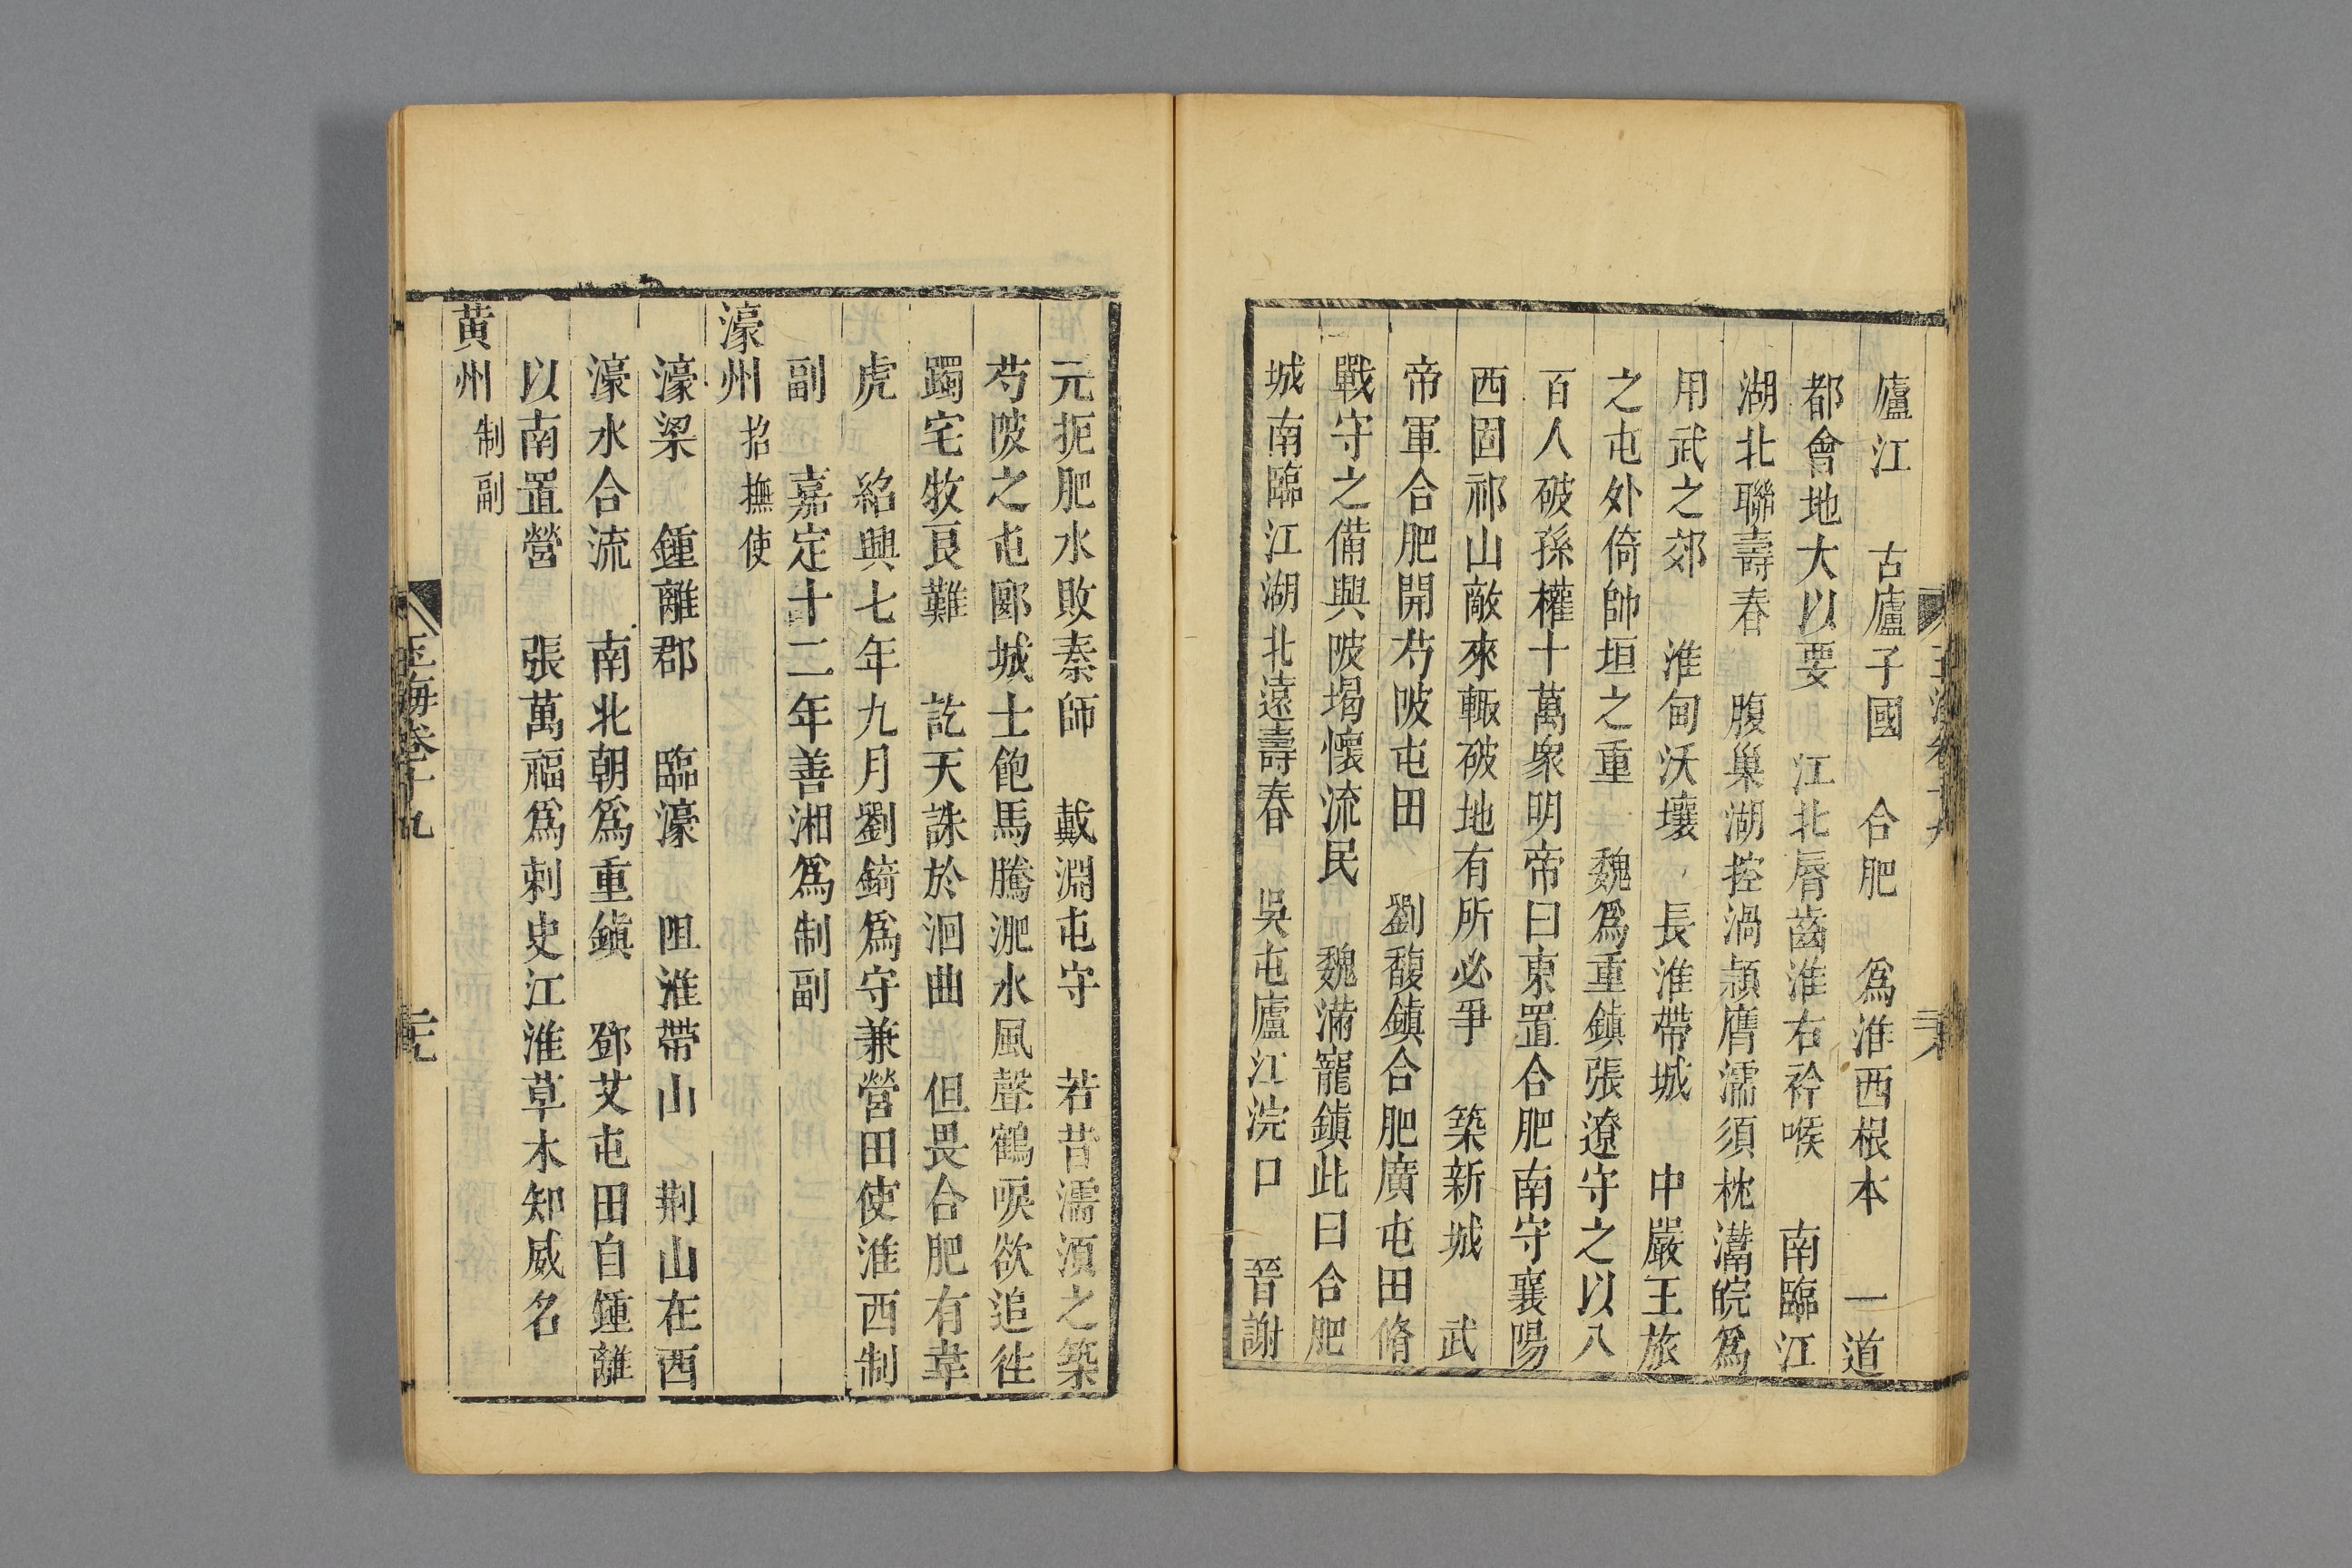 廬江　古廬子國　合肥　爲淮西根本　一道
都會地大以要　江北脣齒淮右衿喉　南臨江
湖北聯壽春　腹巢湖控渦潁膺濡須枕灊皖爲
用武之郊　淮甸沃壤　長淮帶城　中嚴王旅
之屯外倚帥垣之重　魏爲重鎭張遼守之以八
百人破孫權十萬衆明帝曰東置合肥南守襄陽
西固祁山敵來輒破地有所必爭　築新城　武
帝軍合肥開芍陂屯田　劉馥鎭合肥廣屯田脩
戰守之備興陂堨懷流民　魏滿寵鎭此曰合肥
城南臨江湖北遠壽春　吳屯廬江浣口　晉謝
元扼肥水敗秦師　戴淵屯守　若昔濡湏之築
芍陂之屯郾城士飽馬騰淝水風聲鶴唳欲追徃
躅宅牧良難　訖天誅於洄曲　但畏合肥有韋
虎　紹興七年九月劉錡爲守兼營田使淮西制
副　嘉定十二年善湘爲制副
濠州招撫使
濠梁　鍾離郡　臨濠　阻淮帶山　荆山在西
濠水合流　南北朝爲重鎭　鄧艾屯田自鍾離
以南置營　張萬福爲刺史江淮草木知威名
黃州制副
玉海卷十九